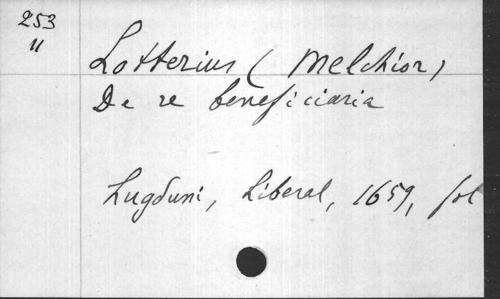 253
U
Lotterius (Melchior)
De re beneficiaria
Lugduni, Liberal, 1659, fol